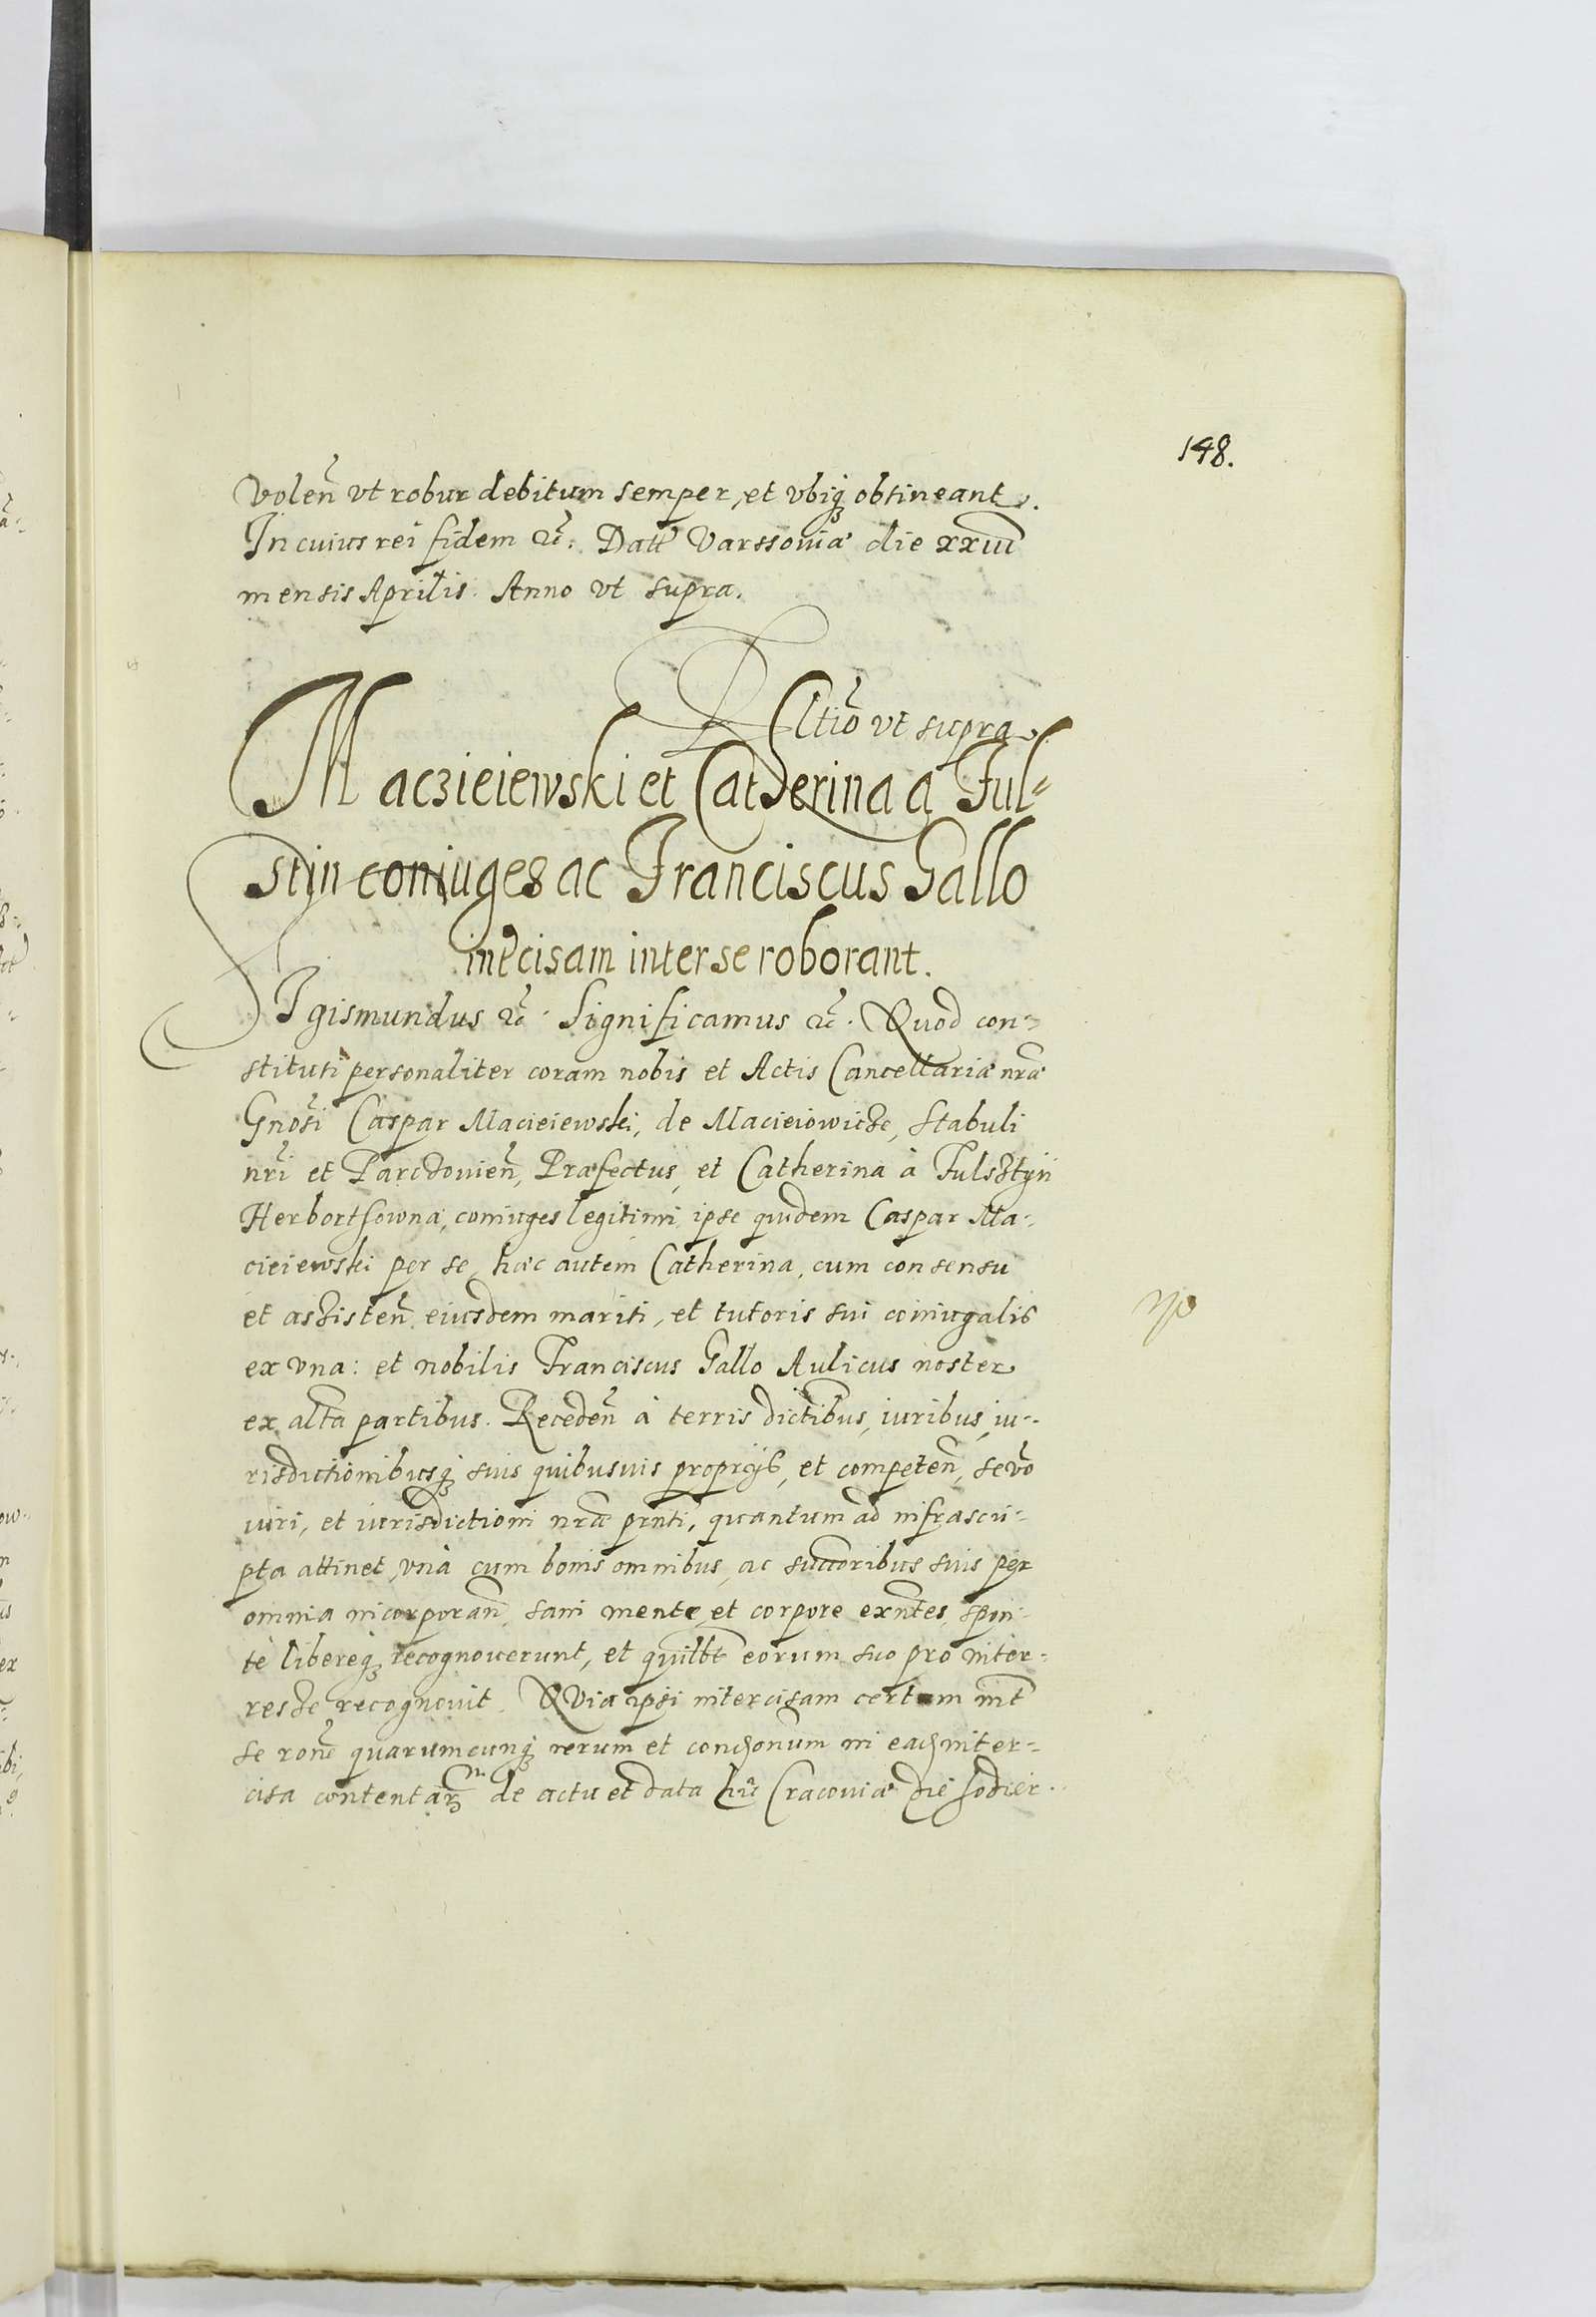 148.
volen̄ vt robur debitum semper, et vbiq₃ obtineant.
In cuius rei fidem &c̄: Datt Varssouiæ die xxiii
mensis Aprilis. Anno vt supra.
Rltiō vt supra.
Maczieiewski et Catherina a Ful-
stijn coniuges ac Franciscus Gallo
intcisam inter se roborant.
Sigismundus &c̄. Significamus &c̄. Quod con-
stituti personaliter coram nobis et Actis Cancellariæ nr̄æ
Gnōsi Caspar Macieiewski, de Macieiowicze, Stabuli
nr̄i et Parczouien̄, Præfectus, et Catherina à Fulsztyn
Herbortsowna, coniuges legitimi, ipse quidem Caspar Ma-
cieiewski per se, hæc autem Catherina, cum consensu
et aszisten̄ eiusdem mariti, et tutoris sui coniugalis
ex vna: et nobilis Franciscus Gallo Aulicus noster
ex alt̄a partibus. Receden̄ à terris dict̄ibus, iuribus, iu-
risdictionibusq₃ suis quibusuis proprijs, et competen̄, se vō
iuri, et iurisdictioni nr̄æ pr̄nti, quantum ad infrascri-
pta attinet, vnà cum bonis omnibus, ac succ̄oribus suis per
omnia incorporan̄, sani mente, et corpore exn̄tes, spon-
te libereq₃ recognouerunt, et quilibt̄ eorum suo pro inter-
resze recognouit. Quia ipsi intercisam certam int̄
se ron̄e quarumcunq₃ rerum et condonum in eadinter-
cisa contentar̄ de actu et data hic Cracouiæ die hodier-